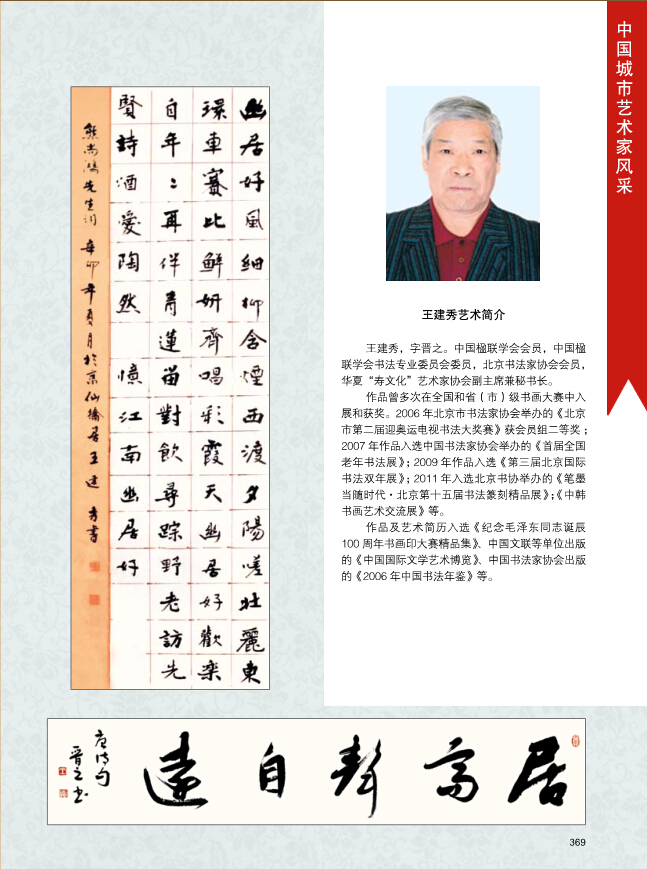 中国城市艺术家风采
幽居好風細柳含煙西渡夕陽嗟壯麗東
環車賽比鮮妍齊唱彩霞天幽居好歡樂
自年〻再伴青蓮對飲尋踪野老訪先
賢詩酒愛陶然 憶江南幽居好
熊尚鴻先生词 辛卯年夏月於京仙橋居王建秀書
王建秀艺术简介
王建秀，字晋之。中国楹联学会会员，中国楹
联学会书法专业委员会委员，北京书法家协会会员，
华夏“寿文化”艺术家协会副主席兼秘书长。
作品曾多次在全国和省（市）级书画大赛中入
展和获奖。2006年北京市书法家协会举办的《北京
市第二届迎奥运电视书法大奖赛》获会员组二等奖；
2007年作品入选中国书法家协会举办的《首届全国
老年书法展》；2009年作品入选《第三届北京国际
书法双年展》；2011年入选北京书协举办的《笔墨
当随时代·北京第十五届书法篆刻精品展》；《中韩
书画艺术交流展》等。
作品及艺术简历入选《纪念毛泽东同志诞辰
100周年书画印大赛精品集》、中国文联等单位出版
的《中国国际文学艺术博览》、中国书法家协会出版
的《2006年中国书法年鉴》等。
居高聲自遠
唐诗句
晋之书
369